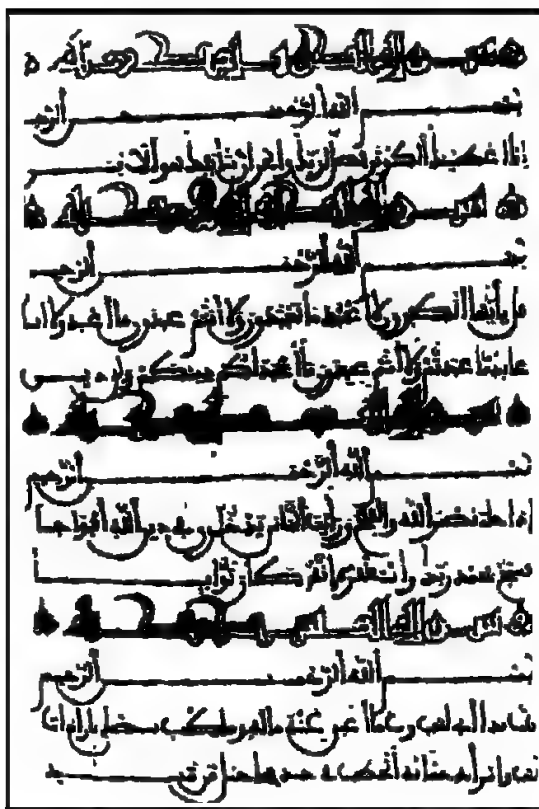 بسم الله الرحمن الرحيم
إنا أعطينك الكوثر فصل لربك وانحر إن شانئك هو الابتر
بسم الله الرحمن الرحيم
قل يأيها الكفرون لا أعبد ما تعبدون ولا أنتم عبدون ما أعبد ولا أنا
عابد ما عبدتم ولا أنتم عبدون ما أعبد لكم دينكم ولي دين
بسم الله الرحمن الرحيم
إذا جاء نصر الله والفتح ورأيت الناس يدخلون في دين الله أفواجا
فسبح بحمد ربك واستغفره إنه كان توابا
بسم الله الرحمن الرحيم
تبت يدا أبي لهب وتب ما أغنى عنه ماله وما كسب سيصلى نارا ذات
لهب وامرأته حمالة الحطب في جيدها حبل من مسد